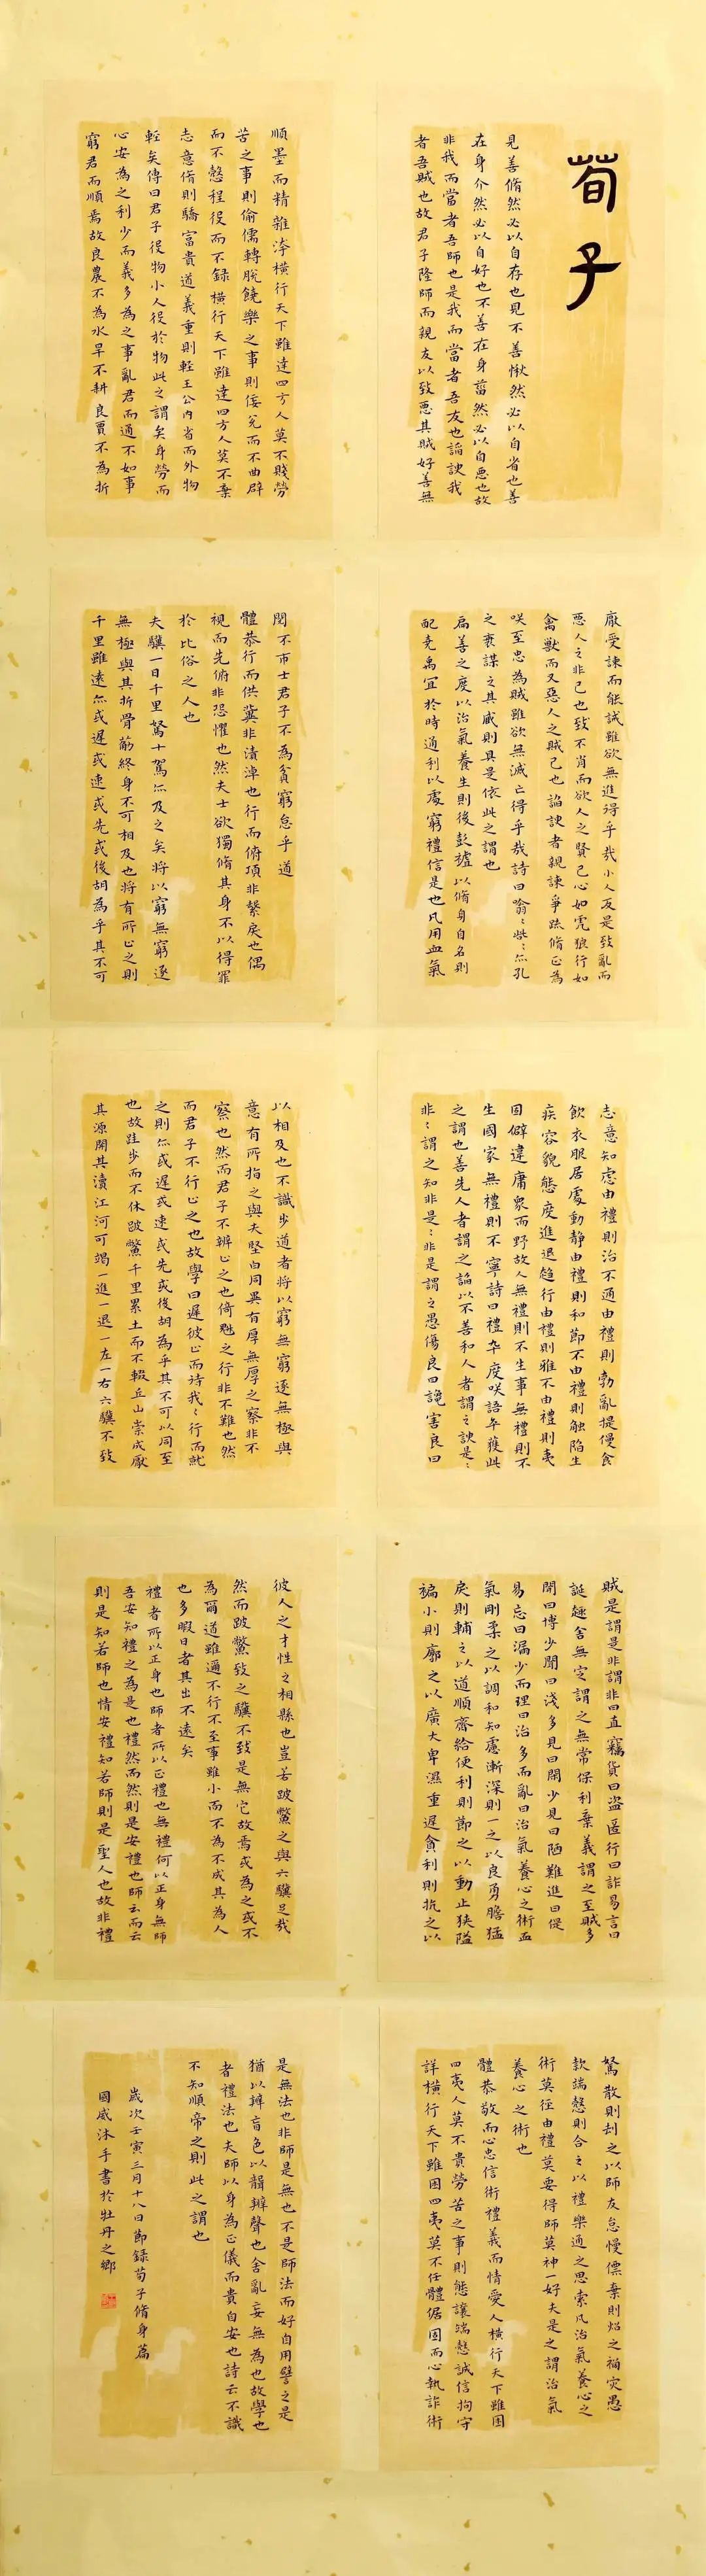 荀子
見善脩然必以自存也見不善愀然必以自省也善
在身介然必以自好也不善在身菑然必以自惡也故
非我而當者吾師也是我而當者吾友也諂諛我
者吾賊也故君子隆師而親友以致惡其賊好善無
厭受諫而能誡雖欲無進得乎哉小人反是致亂而
惡人之非己也致不肖而欲人之賢己心如虎狼行如
禽獸而又惡人之賊己也諂諛者親諫爭踈脩正為
咲至忠為賊雖欲無滅亡得乎哉詩曰噏〻呰〻亦孔
之哀謀之其臧則具是依此之謂也
扁善之度以治氣養生則後彭祖以脩身自名則
配堯禹宜於時通利以處窮禮信是也凡用血氣
志意知慮由禮則治不通由禮則勃亂提僈食
飲衣服居處動靜由禮則和節不由禮則触陷生
疾容貌態度進退趨行由禮則雅不由禮則夷
固僻違庸衆而野故人無禮則不生事無禮則不
生國家無禮則不寧詩曰禮卒度咲語卒獲此
之謂也善先人者謂之諂以不善和人者謂之諛是〻
非〻謂之知非是〻非是謂之愚傷良曰讒害良曰
賊是謂是非謂非曰直竊貨曰盜匿行曰詐易言曰
誕趣舍無定謂之無常保利棄義謂之至賊多
聞曰博少聞曰淺多見曰閑少見曰陋難進曰偍
易忘曰漏少而理曰治多而亂曰治氣養心之術血
氣剛柔之以調和知慮漸深則一之以良勇膽猛
戾則輔之以道順齊給便利則節之以動止狹隘
褊小則廓之以廣大卑濕重遲貪利則抗之以
駑散則刦之以師友怠慢僄棄則炤之禍灾愚
款端愨則合之以禮樂通之思索凡治氣養心之
術莫徑由禮莫要得師莫神一好夫是之謂治氣
養心之術也
體恭敬而心忠信術禮義而情愛人橫行天下雖困
四夷人莫不貴勞苦之事則態讓端愨誠信拘守
詳橫行天下雖困四夷莫不任體倨固而心執詐術
順墨而精雜汙橫行天下雖達四方人莫不賤勞
苦之事則偷儒轉脫饒樂之事則佞兌而不曲辟
而不愨程役而不録橫行天下雖達四方人莫不棄
志意脩則驕富貴道義重則輕王公内省而外物
輕矣傳曰君子役物小人役於物此之謂矣身勞而
心安為之利少而義多為之事亂君而通不如事
窮君而順焉故良農不為水旱不耕良賈不為折
閱不市士君子不為貧窮怠乎道
體恭行而供冀非漬淖也行而俯項非擊戾也偶
視而先俯非恐懼也然夫士欲獨脩其身不以得罪
於比俗之人也
夫驥一日千里駑十駕亦及之矣將以窮無窮逐
無極與其折骨筋終身不可相及也將有所止之則
千里雖遠亦或遲或速或先或後胡為乎其不可
以相及也不識步道者將以窮無窮逐無極與
意有所指之與夫堅白同異有厚無厚之察非不
察也然而君子不辨止之也倚魁之行非不難也然
而君子不行止之也故學曰遲彼止而待我〻行而就
之則亦或遲或速或先或後胡為乎其不可以同至
也故跬步而不休跛鱉千里累土而不輟丘山崇成厭
其源開其瀆江河可竭一進一退一左一右六驥不致
彼人之才性之相縣也豈若跛鱉之與六驥足哉
然而跛鱉致之驥不致是無它故焉或為之或不
為爾道雖邇不行不至事雖小而不為不成其為人
也多暇日者其出不遠矣
禮者所以正身也師者所以正禮也無禮何以正身無師
吾安知禮之為是也禮然而然則是安禮也師云而云
則是知若師也情安禮知若師則是聖人也故非禮
是無法也非師是無也不是師法而好自用譬之是
猶以辨盲色以聾辨聲也舍亂妄無為也故學也
者禮法也夫師以身為正儀而貴自安也詩云不識
不知順帝之則此之謂也
歲次壬寅三月十八日節録荀子脩身篇
國威沐手書於牡丹之鄉